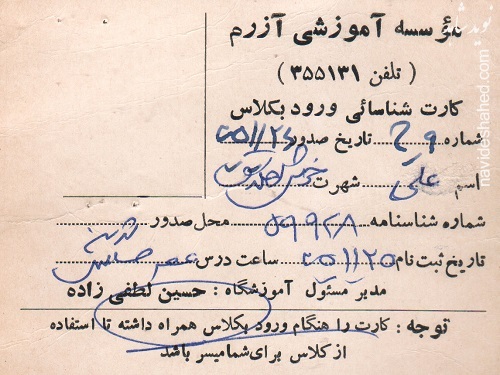 مؤسسه آموزشی آزرم
( تلفن ۳۵۵۱۳۱ )
کارت شناسائی ورود بکلاس
شماره ۹ ح تاریخ صدور
اسم علی شهرت
شماره شناسنامه ۵۹۹۲۸ محل صدور
تاریخ ثبت نام ساعت درس عصر
مدیر مسئول آموزشگاه : حسین لطفی زاده
توجه : کارت را هنگام ورود بکلاس همراه داشته تا استفاده
از کلاس برای شما میسر باشد
navideshahed.com